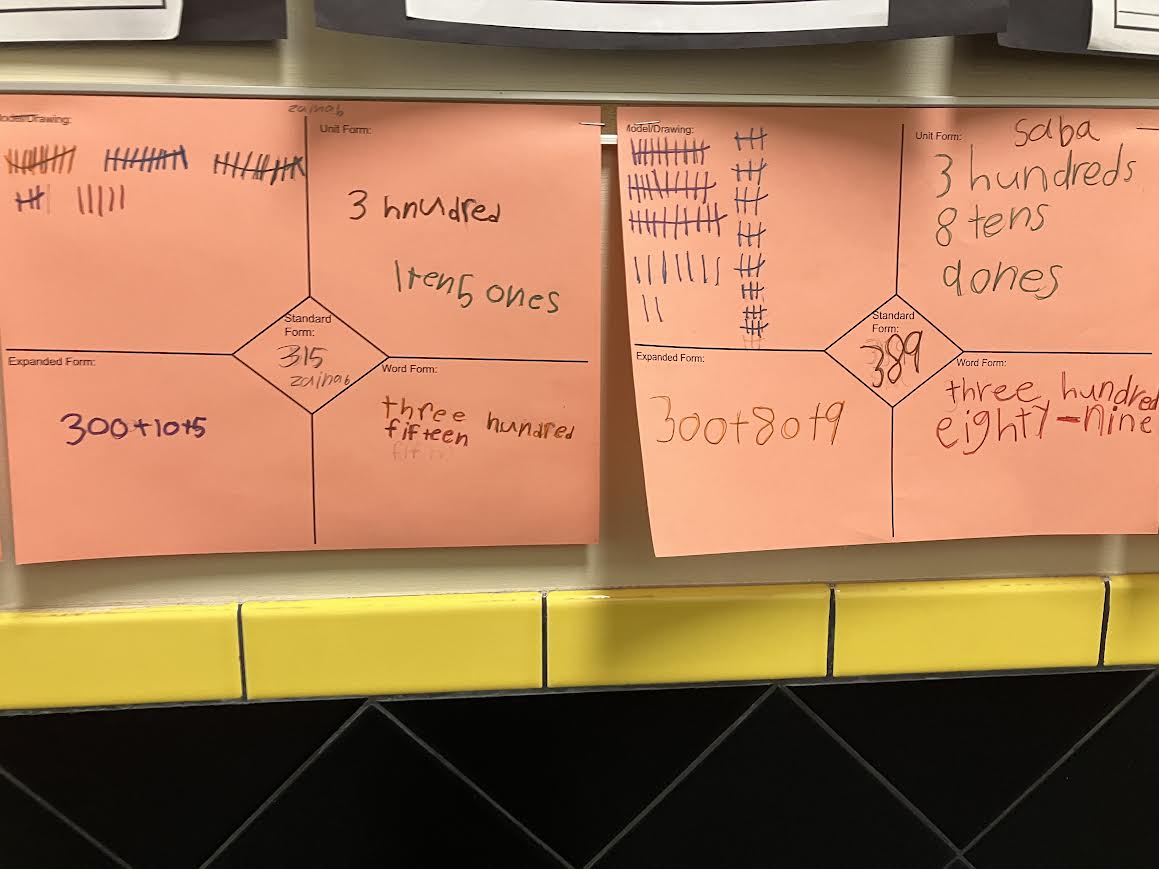 zainab
Model/Drawing:
Unit Form:
3 hnudred
1ten5 ones
Standard
Form:
315
zainab
Expanded Form:
300+10+5
Word Form:
three hundred
fifteen
Model/Drawing:
Unit Form:
saba
3 hundreds
8 tens
9ones
Standard
Form:
389
Expanded Form:
300+80+9
Word Form:
three hundred
eighty-nine